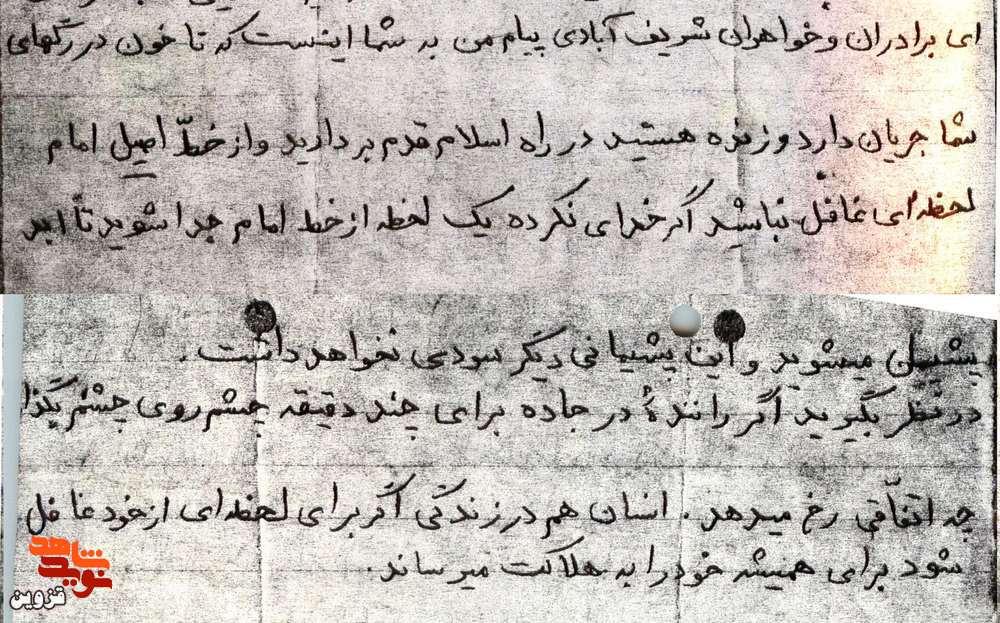 ای برادران و خواهران شریف آبادی پیام من به شما اینست که تا خون در رگهای
شما جریان دارد و زنده هستید در راه اسلام قدم بردارید و از خطّ اصیل امام
لحظه ای غافل نباشید اگر خدای نکرده یک لحظه از خط امام جدا شوید تا ابد
پشیمان میشوید و این پشیمانی دیگر سودی نخواهد داشت.
در نظر بگیرید اگر رانندهٔ در جاده برای چند دقیقه چشم روی چشم بگذا
چه اتفّاقی رخ میدهد. انسان هم در زندگی اگر برای لحظه ای از خود غافل
شود برای همیشه خود را به هلاکت میرساند.
نوید شاهد
قزوین